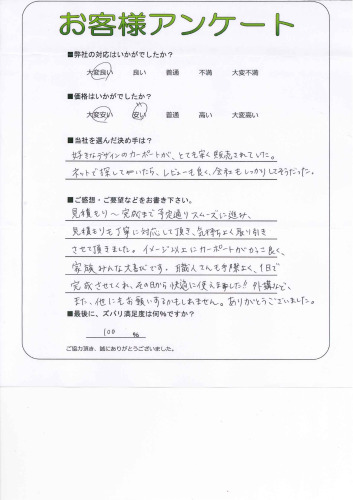 お客様アンケート
■弊社の対応はいかがでしたか？
大変良い 良い 普通 不満 大変不満
■価格はいかがでしたか？
大変安い 安い 普通 高い 大変高い
■当社を選んだ決め手は？
好きなデザインのカーポートが、とても安く販売されていました。
ネットで探していたら、レビューも良く、会社もしっかりしてそうだった。
■ご感想・ご要望などをお書き下さい。
見積もり〜完成まで予定通りスムーズに進み、
見積もりも丁寧に対応して頂き、気持ちよく取り引き
させて頂きました。イメージ以上にカーポートがかっこ良く、
家族みんな大喜びです。職人さんも手際よく、1日で
完成させてくれ、その日から快適に使えました!! 外構など、
また、他にもお願いするかもしれません。ありがとうございました。
■最後に、ズバリ満足度は何％ですか？
100 ％
ご協力頂き、誠にありがとうございました。